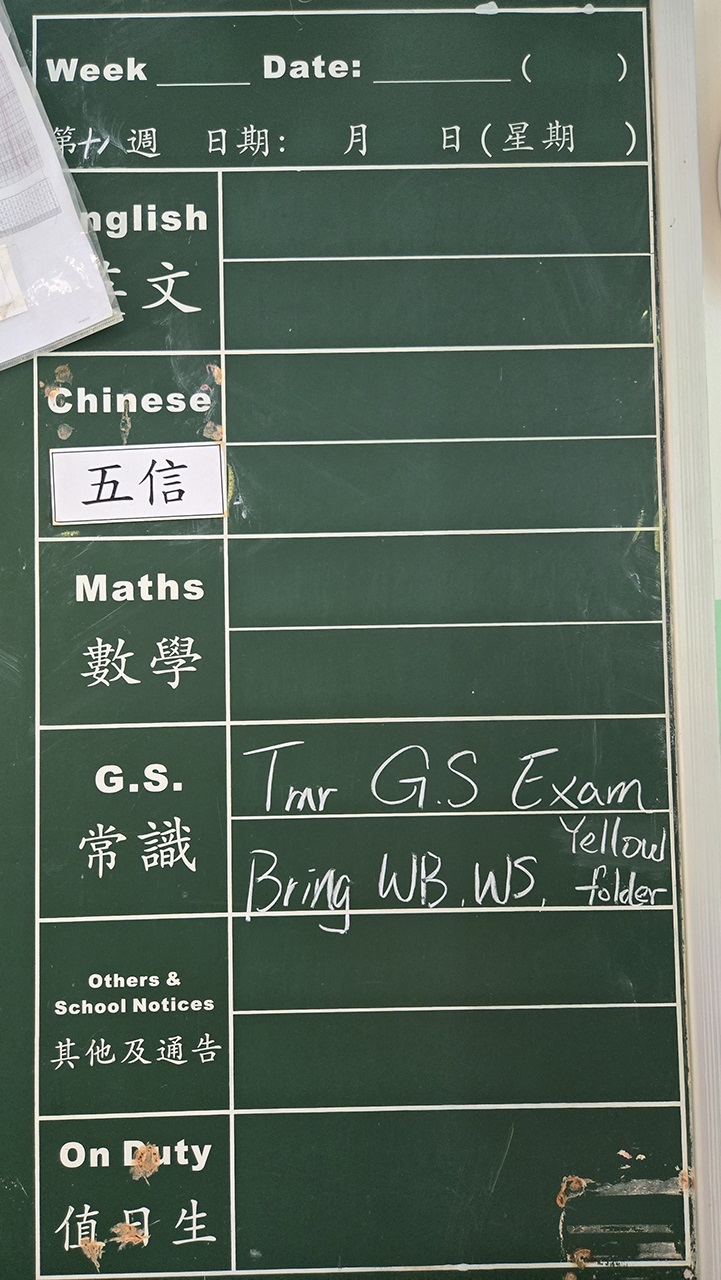 Week ____ Date: ________ ( )
第 週 日期: 月 日(星期 )
nglish
文
Chinese
五信
Maths
數學
G.S.
常識
Tmr G.S Exam
Bring WB, WS, Yellow folder
Others &
School Notices
其他及通告
On Duty
值日生